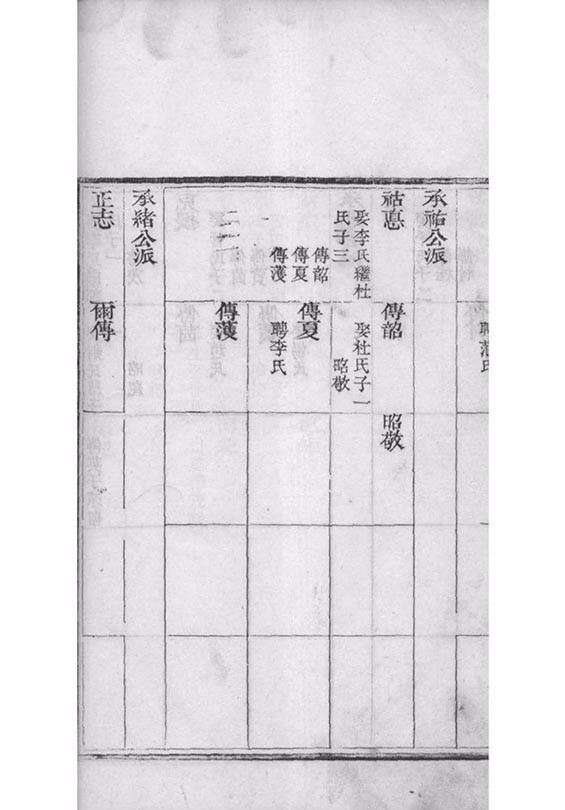 聘范氏
承祐公派
祜惪
娶李氏繼杜
氏子三
傳韶
傳夏
傳濩
傳韶
娶杜氏子一
昭敬
昭敬
一
傳夏
聘李氏
二
三
傳濩
承緒公派
正志
爾傳